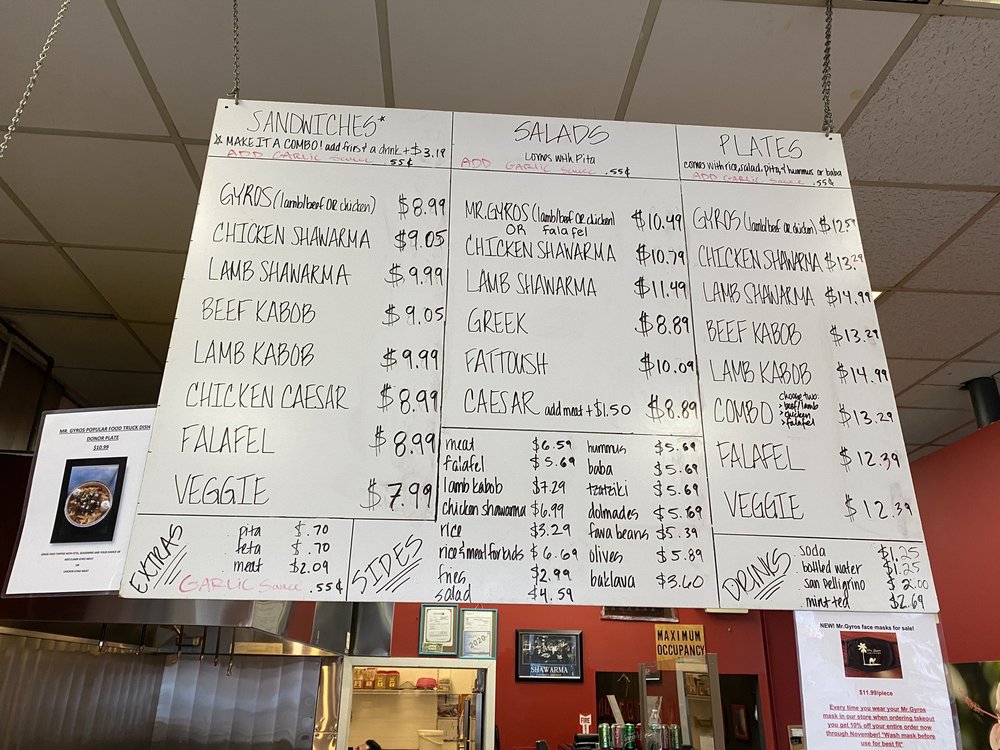 SANDWICHES*
* MAKE IT A COMBO! add fries & a drink + $3.19
ADD GARLIC Sauce .55¢
GYROS (lamb/beef OR chicken) $8.99
CHICKEN SHAWARMA $9.05
LAMB SHAWARMA $9.99
BEEF KABOB $9.05
LAMB KABOB $9.99
CHICKEN CAESAR $8.99
FALAFEL $8.99
VEGGIE $7.99
EXTRAS
pita $.70
feta $.70
meat $2.09
GARLIC Sauce .55¢
SALADS
comes with Pita
ADD GARLIC Sauce .55¢
MR. GYROS (lamb/beef OR chicken) $10.49
OR falafel
CHICKEN SHAWARMA $10.79
LAMB SHAWARMA $11.49
GREEK $8.89
FATTOUSH $10.09
CAESAR add meat + $1.50 $8.89
SIDES
meat $6.59
falafel $5.69
lamb kabob $7.29
chicken shawarma $6.99
rice $3.29
rice & meat for kids $6.69
fries $2.99
salad $4.59
hummus $5.69
baba $5.69
tzatziki $5.69
dolmades $5.69
fava beans $5.39
olives $5.89
baklava $3.60
PLATES
comes with rice, salad, pita, & hummus or baba
ADD GARLIC Sauce .55¢
GYROS (lamb/beef OR chicken) $12.59
CHICKEN SHAWARMA $13.29
LAMB SHAWARMA $14.99
BEEF KABOB $13.29
LAMB KABOB $14.99
COMBO choose two:
> beef/lamb
> chicken
> falafel
$13.29
FALAFEL $12.39
VEGGIE $12.39
DRINKS
soda $1.25
bottled water $1.25
san pelligrino $2.00
mint tea $2.69
MR. GYROS POPULAR FOOD TRUCK DISH
DONOR PLATE
$10.99
OR
2020
SHAWARMA
MAXIMUM
OCCUPANCY
FIRE
NEW! Mr.Gyros face masks for sale!
$11.99/piece
Every time you wear your Mr Gyros
mask in our store when ordering takeout
you get 10% off your entire order now
through November! *Wash mask before
use for best fit